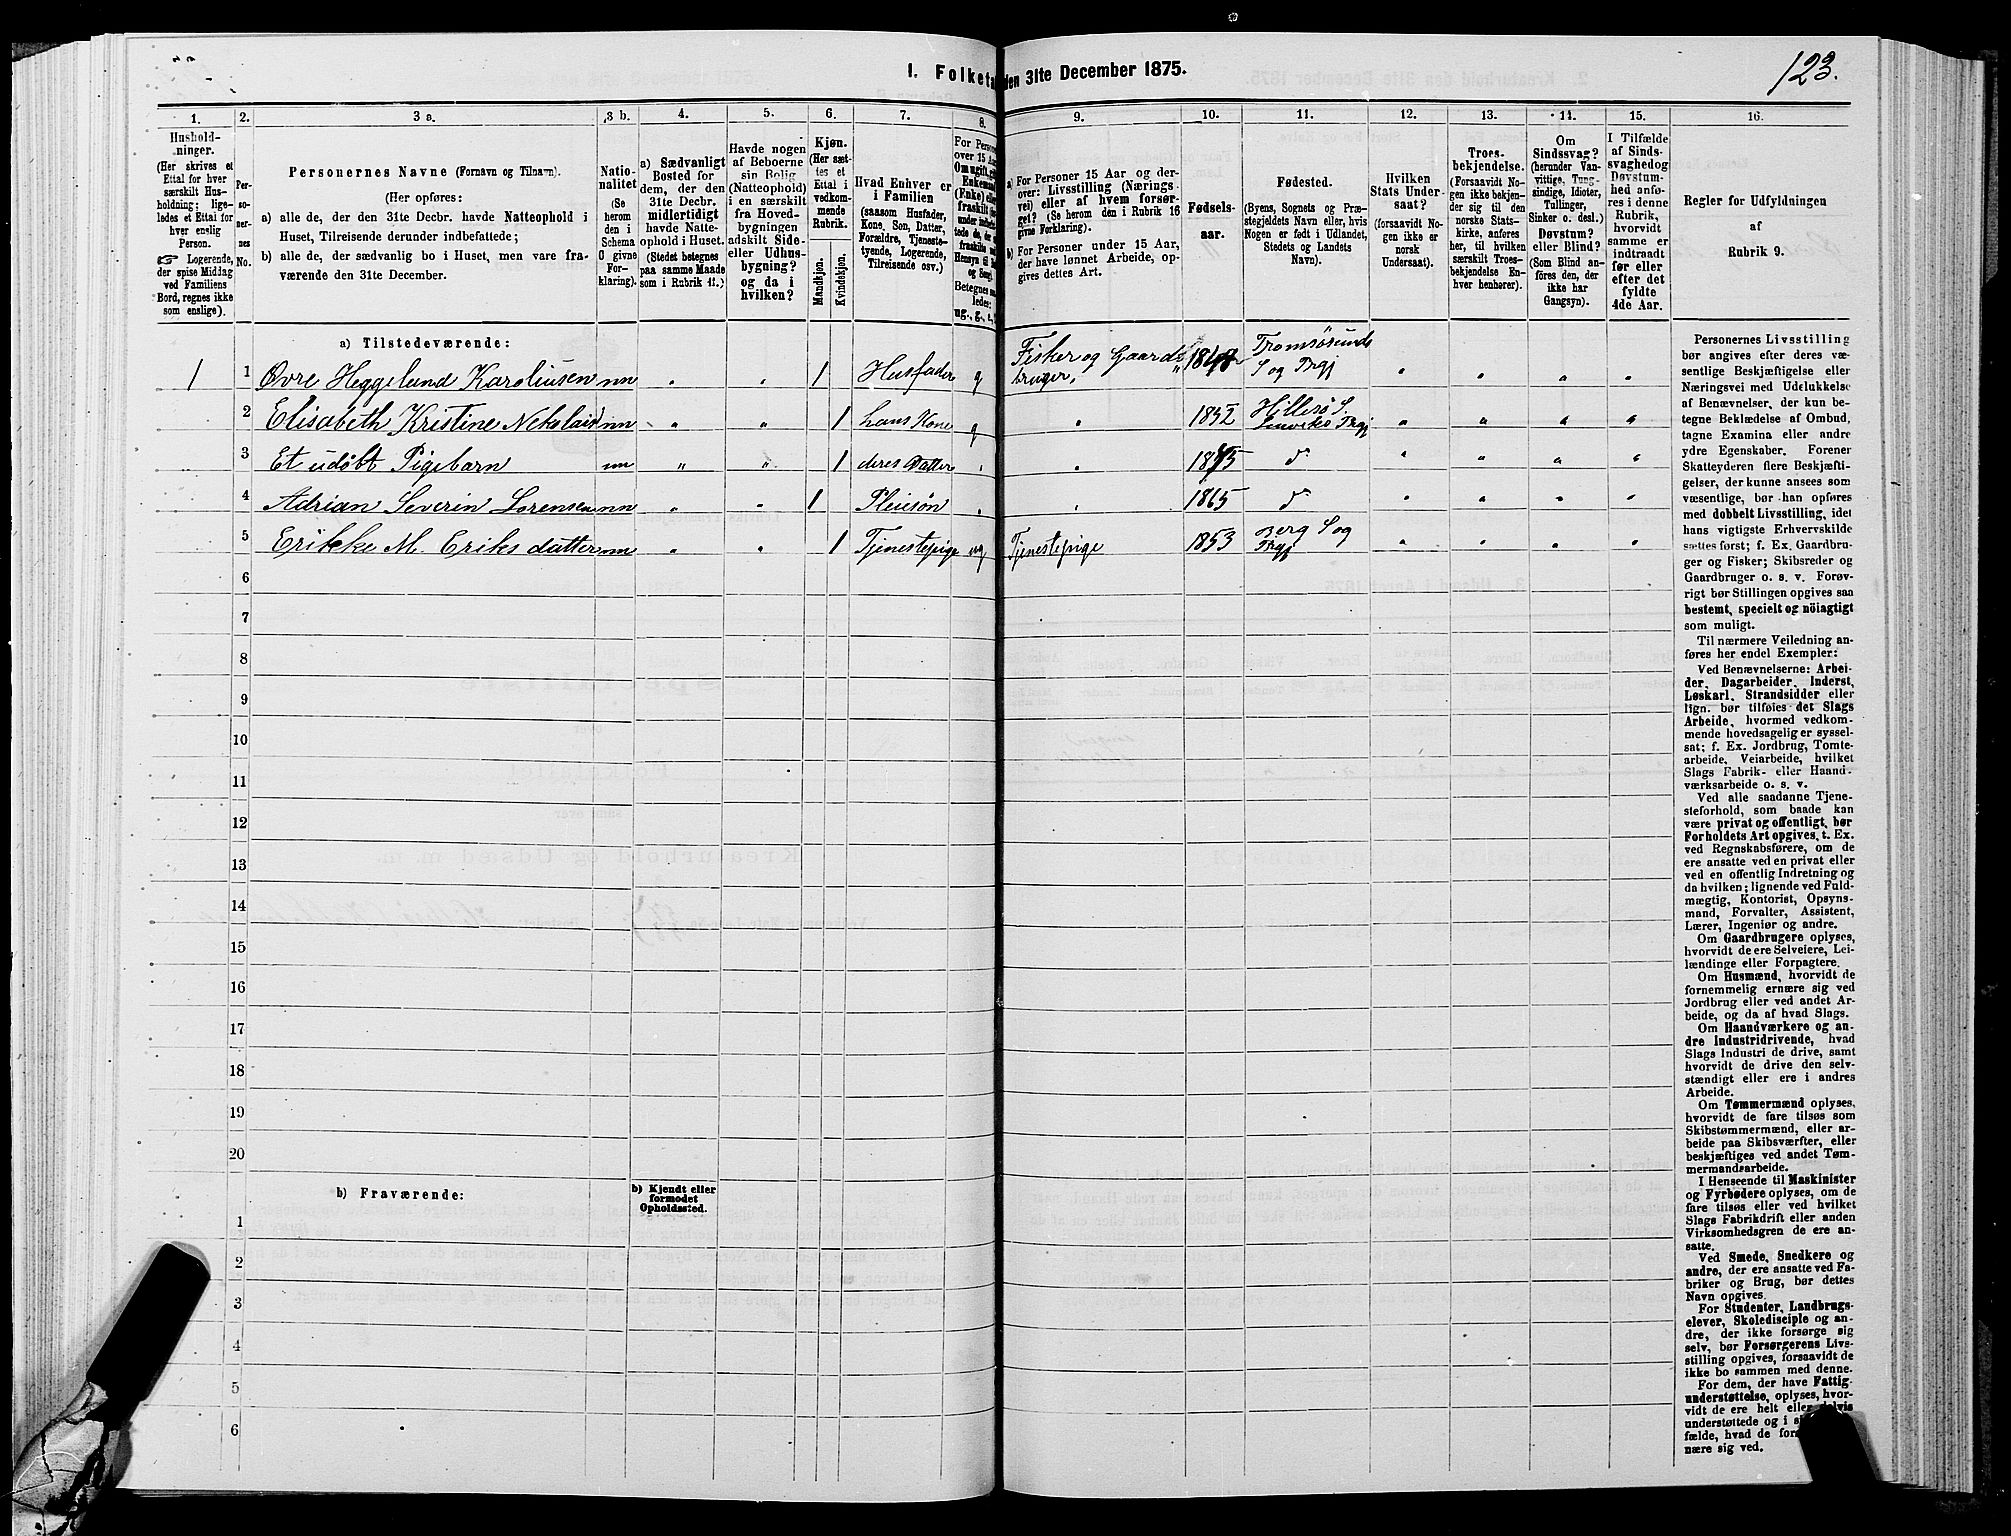 123.
1. Folketa den 31te December 1875.
1. 2. 3 a. 3 b. 4. 5. 6. 7. 8. 9. 10. 11. 12. 13. 14. 15. 16.
Hushold-
ninger.
(Her skrives et
Ettal for hver
særskilt Hus-
holdning; lige-
ledes et Ettal for
hver enslig
Person.
☞ Logerende,
der spise Middag
ved Familiens
Bord, regnes ikke
som enslige).
Per-
so-
ner-
nes
No.
Personernes Navne (Fornavn og Tilnavn).
(Her opføres:
a) alle de, der den 31te Decbr. havde Natteophold i
Huset, Tilreisende derunder indbefattede;
b) alle de, der sædvanlig bo i Huset, men vare fra-
værende den 31te December.
Natio-
nalitet
(Se
herom
den i
Schema
O givne
For-
klaring).
a) Sædvanligt
Bosted for
dem, der den
31te Decbr.
midlertidigt
havde Natte-
ophold i Huset.
(Stedet betegnes
paa samme Maade
som i Rubrik 11.)
Havde nogen
af Beboerne
sin Bolig
(Natteophold)
i en særskilt
fra Hoved-
bygningen
adskilt Side-
eller Udhus-
bygning?
og da i
hvilken?
Kjøn.
(Her sæt-
tes et
Ettal i
vedkom-
mende
Rubrik.
Mandkjøn.
Kvindekjøn.
Hvad Enhver er
i Familien
(saasom Husfader,
Kone, Søn, Datter,
Forældre, Tjeneste-
tyende, Logerende,
Tilreisende osv.)
For Persone
over 15 Aar
Om ugift, gi
Enkemand
(Enke) elle
fraskilt
Betegnes saa-
ledes:
ug., g., e.,
a) For Personer 15 Aar og der-
over: Livsstilling (Nærings-
vei) eller af hvem forsør-
get? (Se herom den i Rubrik 16
givne Forklaring).
b) For Personer under 15 Aar,
der have lønnet Arbeide, op-
gives dettes Art.
Fødsels-
aar.
Fødested.
(Byens, Sognets og Præ-
stegjeldets Navn eller, hvis
Nogen er født i Udlandet,
Stedets og Landets
Navn).
Hvilken
Stats Under-
saat?
(forsaavidt No-
gen ikke er
norsk
Undersaat).
Troes-
bekjendelse.
(Forsaavidt No-
gen ikke bekjen-
der sig til den
norske Stats-
kirke, anføres
her, til hvilken
særskilt Troes-
bekjendelse En-
hver henhører).
Om
Sindssvag?
(herunder Van-
vittige, Tung-
sindige, Idioter,
Tullinger,
Sinker o. desl.)
Døvstum?
eller Blind?
(Som Blind an-
føres den, der
ikke har
Gangsyn).
I Tilfælde
af Sinds-
svaghed og
Døvstum-
hed anfø-
res i denne
Rubrik,
hvorvidt
samme er
indtraadt
før eller
efter det
fyldte
4de Aar.
Regler for Udfyldningen
af
Rubrik 9.
a) Tilstedeværende:
1 1 Øvre Heggelund Karoliusen nn " " 1 Husfader g Fisker og Gaard- bruger, Tromsøsunds S og Prgj " " " "
2 Elisabeth Kristine nn " " 1 hans Kone g " 1832 Hillesø S. Prgj " " " "
3 Et udøbt Pigebarn nn " " 1 deres Datter " " 1875 d " " " "
4 Adrian Severin Lorensen nn " " 1 Pleiesøn " " 1865 d " " " "
5 Erikke M. Eriksdatter nn " " 1 Tjenestepige ug Tjenestepige 1853 Berg S og Prgj " " " "
6
7
8
9
10
11
12
13
14
15
16
17
18
19
20
b) Fraværende:
b) Kjendt eller
formodet
Opholdssted.
1
2
3
4
5
6
Personernes Livsstilling
bør angives efter deres væ-
sentlige Beskjæftigelse eller
Næringsvei med Udelukkelse
af Benævnelser, der kun be-
tegne Beklædelse af Ombud,
tagne Examina eller andre
ydre Egenskaber. Forener
Skatteyderen flere Beskjæfti-
gelser, der kunne ansees som
væsentlige, bør han opføres
med dobbelt Livsstilling, idet
hans vigtigste Erhvervskilde
sættes først; f. Ex. Gaardbru-
ger og Fisker; Skibsreder og
Gaardbruger o. s. v. Forøv-
rigt bør Stillingen opgives saa
bestemt, specielt og nöiagtigt
som muligt.
Til nærmere Veiledning an-
føres her endel Exempler:
Ved Benævnelserne: Arbei-
der, Dagarbeider, Inderst,
Løskarl, Strandsidder eller
lign. bør tilføies det Slags
Arbeide, hvormed vedkom-
mende hovedsagelig er syssel-
sat; f. Ex. Jordbrug, Tomte-
arbeide, Veiarbeide, hvilket
Slags Fabrik- eller Haand-
værksarbeide o. s. v.
Ved alle saadanne Tjene-
steforhold, som baade kan
være privat og offentligt, bør
Forholdets Art opgives, t. Ex.
ved Regnskabsførere, om de
ere ansatte ved en privat eller
ved en offentlig Indretning og
da hvilken; lignende ved Fuld-
mægtig, Kontorist, Opsyns-
mand, Forvalter, Assistent,
Lærer, Ingeniør og andre.
Om Gaardbrugere oplyses,
hvorvidt de ere Selveiere, Lei-
lændinge eller Forpagtere.
Om Husmænd, hvorvidt de
fornemmelig ernære sig ved
Jordbrug eller ved andet Ar-
beide, og da af hvad Slags.
Om Haandværkere og an-
dre Industridrivende, hvad
Slags Industri de drive, samt
hvorvidt de drive den selv-
stændigt eller ere i andres
Arbeide.
Om Tømmermænd oplyses,
hvorvidt de fare tilsøs som
Skibstømmermænd, eller ar-
beide paa Skibsværfter, eller
beskjæftiges ved andet Tøm-
mermandsarbeide.
I Henseende til Maskinister
og Fyrbødere oplyses, om de
fare tilsøs eller ved hvilket
Slags Fabrikdrift eller anden
Virksomhedsgren de ere an-
satte.
Ved Smede, Snedkere og
andre, der ere ansatte ved Fa-
briker og Brug, bør dettes
Navn opgives.
For Studenter, Landbrugs-
elever, Skoledisciple og an-
dre, der ikke forsørge sig
selv, bør Forsørgerens Livs-
stilling opgives, forsaavidt de
ikke bo sammen med denne.
For dem, der have Fattig-
understøttelse, oplyses, hvor-
vidt de ere helt eller delvis
understøttede og i s
fælde, hvad de for
nære sig ved.